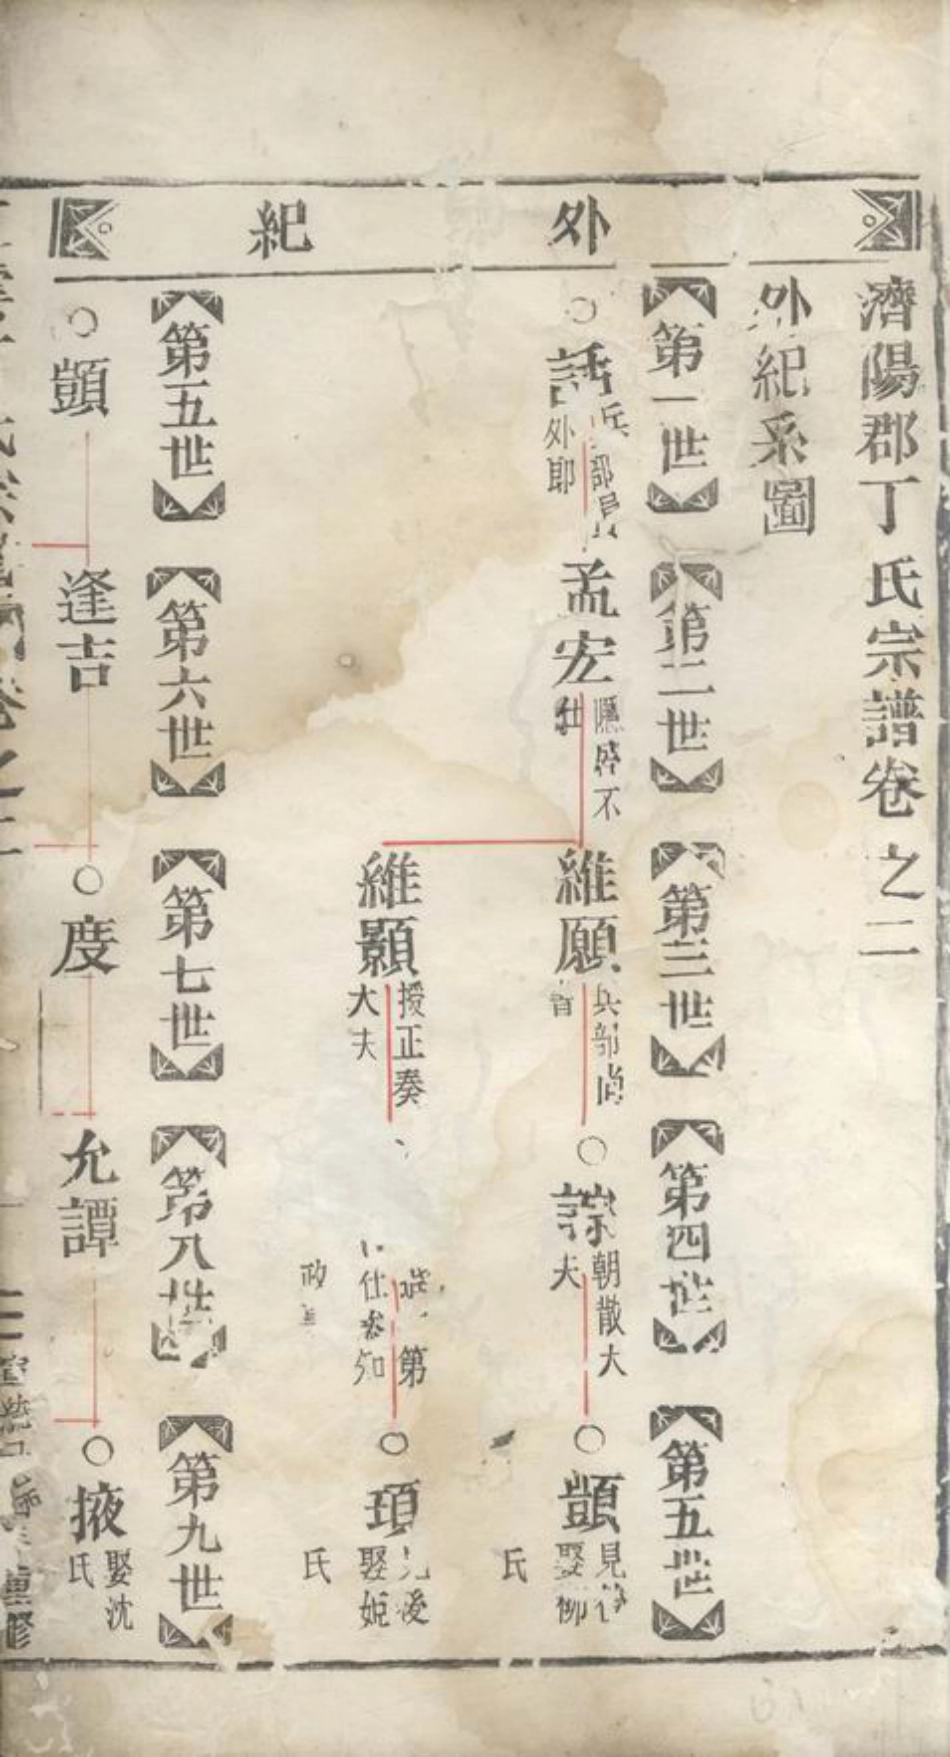 外紀
濟陽郡丁氏宗譜卷之二
外紀系圖
第一世
第二世
第三世
第四世
第五世
○話
兵部員
外郎
孟宏
隱居不
仕
維願
兵部尚
書
○諒
朝散大
夫
○顗
娶柳
氏
維顥
授正奏
大夫
第
仕參知
政
○頊
娶姬
氏
第五世
第六世
第七世
第八世
第九世
○顗
逢吉
○度
允譚
○掖
娶沈
氏